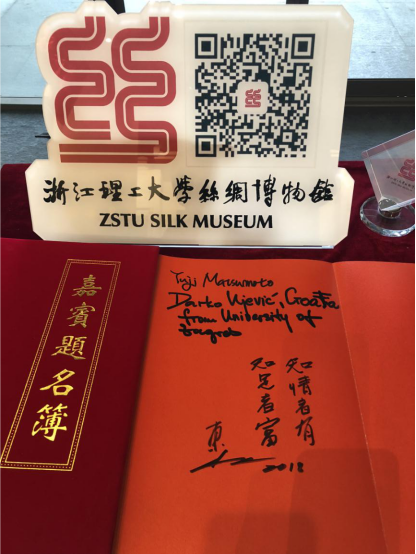 浙江理工大學絲綢博物館
ZSTU SILK MUSEUM
嘉賓題名簿
Yuji Matsumoto
Darko Ujević, Croatia
from University of
Zagreb
知情者有
知足者富
東
2018